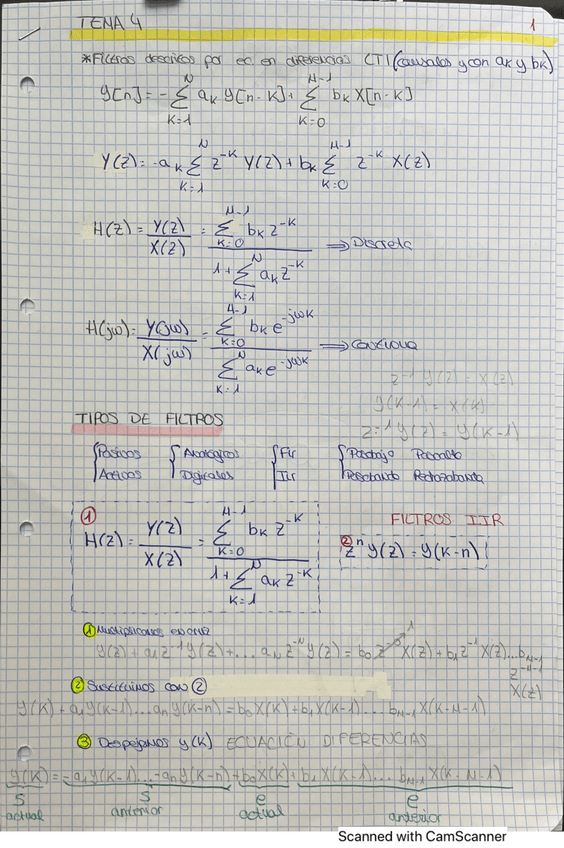 TEMA 4 1
*Filtros descritos por ec. en diferencias CTI (causales y con ak y bk)
y[n] = - Σ_{K=1}^{N} ak y[n-K] + Σ_{K=0}^{M-1} bk X[n-K]
Y(z) = -ak Σ_{K=1}^{N} z^-K Y(z) + bk Σ_{K=0}^{M-1} z^-K X(z)
H(z) = Y(z)/X(z) = Σ_{K=0}^{M-1} bk z^-K / 1 + Σ_{K=1}^{N} ak z^-K ⇒ Discreta
H(jω) = Y(jω)/X(jω) = Σ_{K=0}^{M-1} bk e^-jωK / Σ_{K=1}^{N} ak e^-jωK ⇒ Continua
z^-1 y(z) = X(z)
y(K-1) = X(K)
z^-1 y(z) = y(K-1)
TIPOS DE FILTROS
{Pasivos {Analógicos {Fir {Pasabajo Pasoalto
Activos Digitales Iir Pasobanda Rechazabanda
①
H(z) = Y(z)/X(z) = Σ_{K=0}^{M-1} bk z^-K / 1 + Σ_{K=1}^{N} ak z^-K
FILTROS IIR
② z^n y(z) = y(K-n)
① Multiplicamos en cruz
y(z) + a1 z^-1 y(z) + ... aN z^-N y(z) = b0 z^-0 X(z) + b1 z^-1 X(z) ... bM-1 z^-M-1 X(z)
1
② Sustituimos con ②
y(K) + a1 y(K-1) ... an y(K-n) = b0 X(K) + b1 X(K-1) ... bM-1 X(K-M-1)
③ Despejamos y(K) ECUACIÓN DIFERENCIAS
y(K) = -a1 y(K-1) ... -an y(K-n) + b0 X(K) + b1 X(K-1) ... bM-1 X(K-M-1)
S S e e
actual anterior actual anterior
Scanned with CamScanner